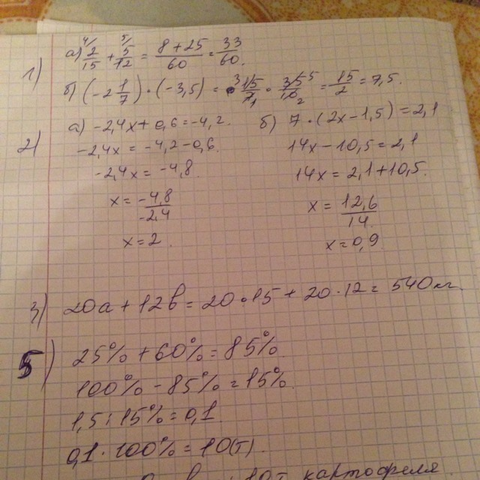 1) а) 2/15 + 5/12 = (8+25)/60 = 33/60.
б) (-2 1/7) · (-3,5) = 15/7 · 35/10 = 15/2 = 7,5.
2) а) -2,4x + 0,6 = -4,2.
-2,4x = -4,2 - 0,6.
-2,4x = -4,8
x = -4,8/-2,4
x = 2.
б) 7 · (2x - 1,5) = 2,1
14x - 10,5 = 2,1
14x = 2,1 + 10,5.
x = 12,6/14
x = 0,9
3) 20a + 12b = 20 · 15 + 20 · 12 = 540 кг.
5) 25% + 60% = 85%.
100% - 85% = 15%.
1,5 : 15% = 0,1
0,1 · 100% = 10(т).
10т картофеля.